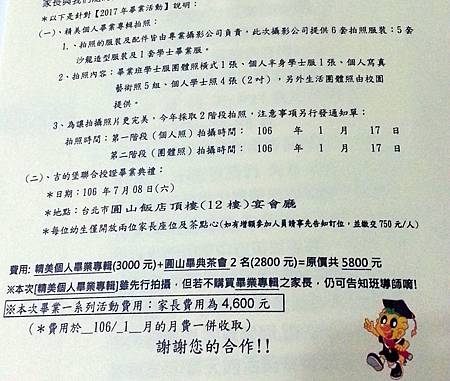 家長與我們
＊以下是針對【2017年畢業活動】說明：
(一)、精美個人畢業專輯拍照：
1.、拍照的服裝及配件皆由專業攝影公司負責，此次攝影公司提供6套拍照服裝：5套
沙龍造型服裝及1套學士畢業服。
2、拍照內容：畢業班學士服團體照橫式1張、個人半身學士服1張、個人寫真
藝術照5組、個人學士照4張(2吋)，另外生活團體照由校園
提供。
3、為讓拍攝照片更完美，今年採取2階段拍照，注意事項另行發通知單：
拍照時間：第一階段(個人照)拍攝時間： 106 年 1 月 17 日
第二階段(團體照)拍攝時間： 106 年 1 月 17 日
(二)、吉的堡聯合授證畢業典禮：
＊日期：106 年 7 月 08 日(六)
＊地點：台北市圓山飯店頂樓(12 樓)宴會廳
＊每位幼生僅開放兩位家長座位及茶點心(如有增額參加人員請事先告知訂位，並繳交 750 元/人)
費用: 精美個人畢業專輯(3000 元)+圓山畢典茶會 2 名(2800 元)=原價共 5800元
※本次[精美個人畢業專輯]雖先行拍攝，但若不購買畢業專輯之家長，仍可告知班導師喔!
※本次畢業一系列活動費用：家長費用為 4,600 元
(＊費用於__106/_1__月的月費一併收取)
謝謝您的合作!!